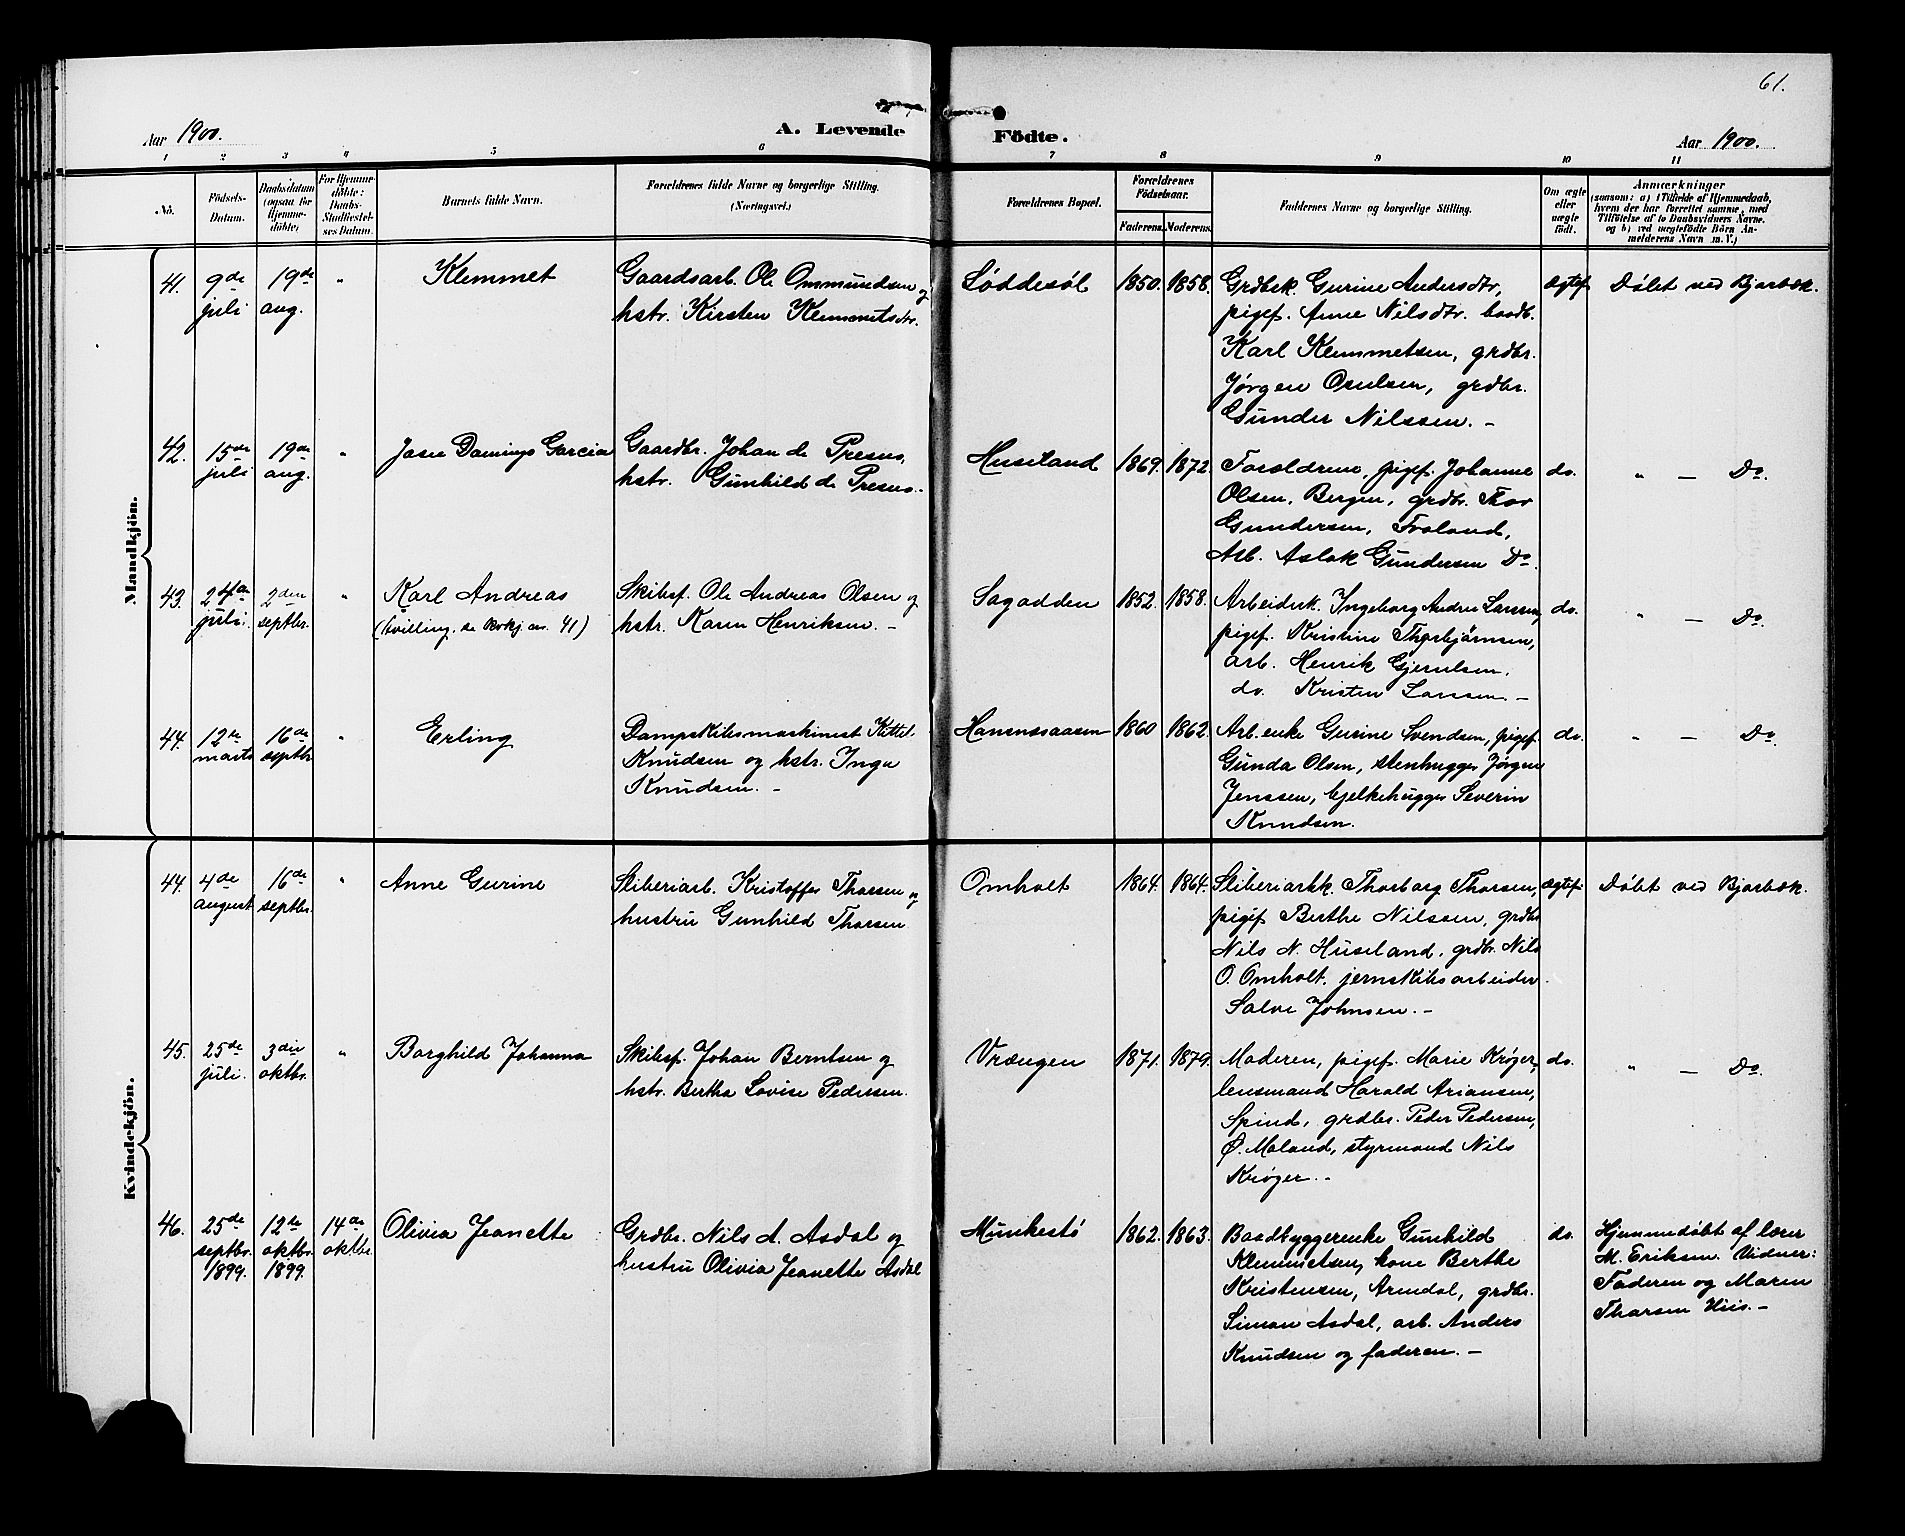 61.
Aar 1900.
A. Levende
Födte.
Aar 1900.
1 2 3 4 5 6 7 8 9 10 11
No.
Födsels-
Datum.
Daabsdatum
(ogsaa for
Hjemme-
döbte)
For Hjemme-
döbte:
Daabs-
Stadfæstel-
ses Datum.
Barnets fulde Navn.
Forældrenes fulde Navne og borgerlige Stilling.
(Næringsvei.)
Forældrenes Bopæl.
Forældrenes
Födselsaar.
Faderens. Moderens.
Faddernes Navne og borgerlige Stilling.
Om ægte
eller
uægte
födt.
Anmærkninger
(saasom: a) i Tilfælde af Hjemmedaab,
hvem der har forrettet samme, med
Tilföielse af to Daabsvidners Navne,
og b) ved uægtefödte Börn An-
melderens Navn m. V.)
Mandkjön.
41.
9de
juli
19de
aug.
"
Klemmet
Gaardsarb. Ole Ommundsen og
hstr. Kirsten Klemmetsdtr.
Løddesøl
1850. 1858.
Grdbek. Gurine Andersdtr,
pigef. Anne Nilsdtr. baadb.
Karl Klemmetsen, grdbr.
Jørgen Osulsen, grdbr.
Gunder Nilssen. -
Ægtef.
Døbt ved Bjarbæk.
42.
15de
juli
19de
aug.
"
Garcia
Gaardbr. Johan de Presno,
hstr. Gunhild de Presno.
Huseland
1869. 1872.
Forældrene, pigef. Johanne
Olsen, Bergen, grdbr. Thor
Gundersen, Froland,
Arb. Aslak Gundersen Do
do.
" - Do.
43.
24de
juli.
2den
septbr.
"
Karl Andreas
(tvilling, se kvkj nr. 41)
Skibsf. Ole Andreas Olsen og
hstr. Karen Henriksen. -
Sagadden
1852. 1858.
Arbeidsk. Ingeborg Andrea Larssen,
pigef. Kristine Thorbjørnsen,
arb. Henrik Gjerulsen.
do. Kristen Larssen. -
do.
" - Do.
44.
12te
marts
16de
septbr.
"
Erling
Dampskibsmaskinest Kittel
Knudsen og hstr. Inga
Knudsen. -
1860 1862.
Arb.enke Gurine Svendsen, pigef.
Gunda Olsen, stenhugger Jørgen
Jenssen, bjelkehugger Severin
Knudsen.
do.
" - Do.
Kvindekjön.
44.
4de
august
16de
septbr.
"
Anne Gurine
Sliberiarb. Kristoffer Thorsen og
hustru Gunhild Thorsen
Omholt
1864. 1864.
Sliberiarbk. Thorborg Thorsen,
pigef. Berthe Nilssen, grdbr.
Nils N. Huseland, grdbr. Nils
O. Omholt. jernskibsarbeider
Salve Johnsen. -
Ægtef.
Døbt ved Bjarbæk.
45.
25de
juli.
3die
oktbr.
"
Borghild Johanna
Skibsf. Johan Berntsen og
hstr. Bertha Lovise Pedersen.
Vrængen
1871. 1879.
Moderen, pigef. Marie Krøger,
lensmand Harald Ariansen,
Spind, grdbr. Peder Pedersen,
Ø. Moland, styrmand Nils
Krøger. -
do.
" - Do.
46.
25de
septbr.
1899.
12te
oktbr.
1899.
14de
oktbr.
Olivia Jeanette
Grdbr. Nils A. Asdal og
hustru Olivia Jeanette Asdal
Munkestø
1862. 1863.
Baadbyggerenke Gunhild
Klemmetsen, kone Berthe
Kristensen, Arendal, grdbr.
Simon Asdal, arb. Anders
Knudsen og faderen. -
do.
Hjemmedøbt af lærer
M. Eriksen. Vidner:
Faderen og Maren
Thorsen Hiis. -